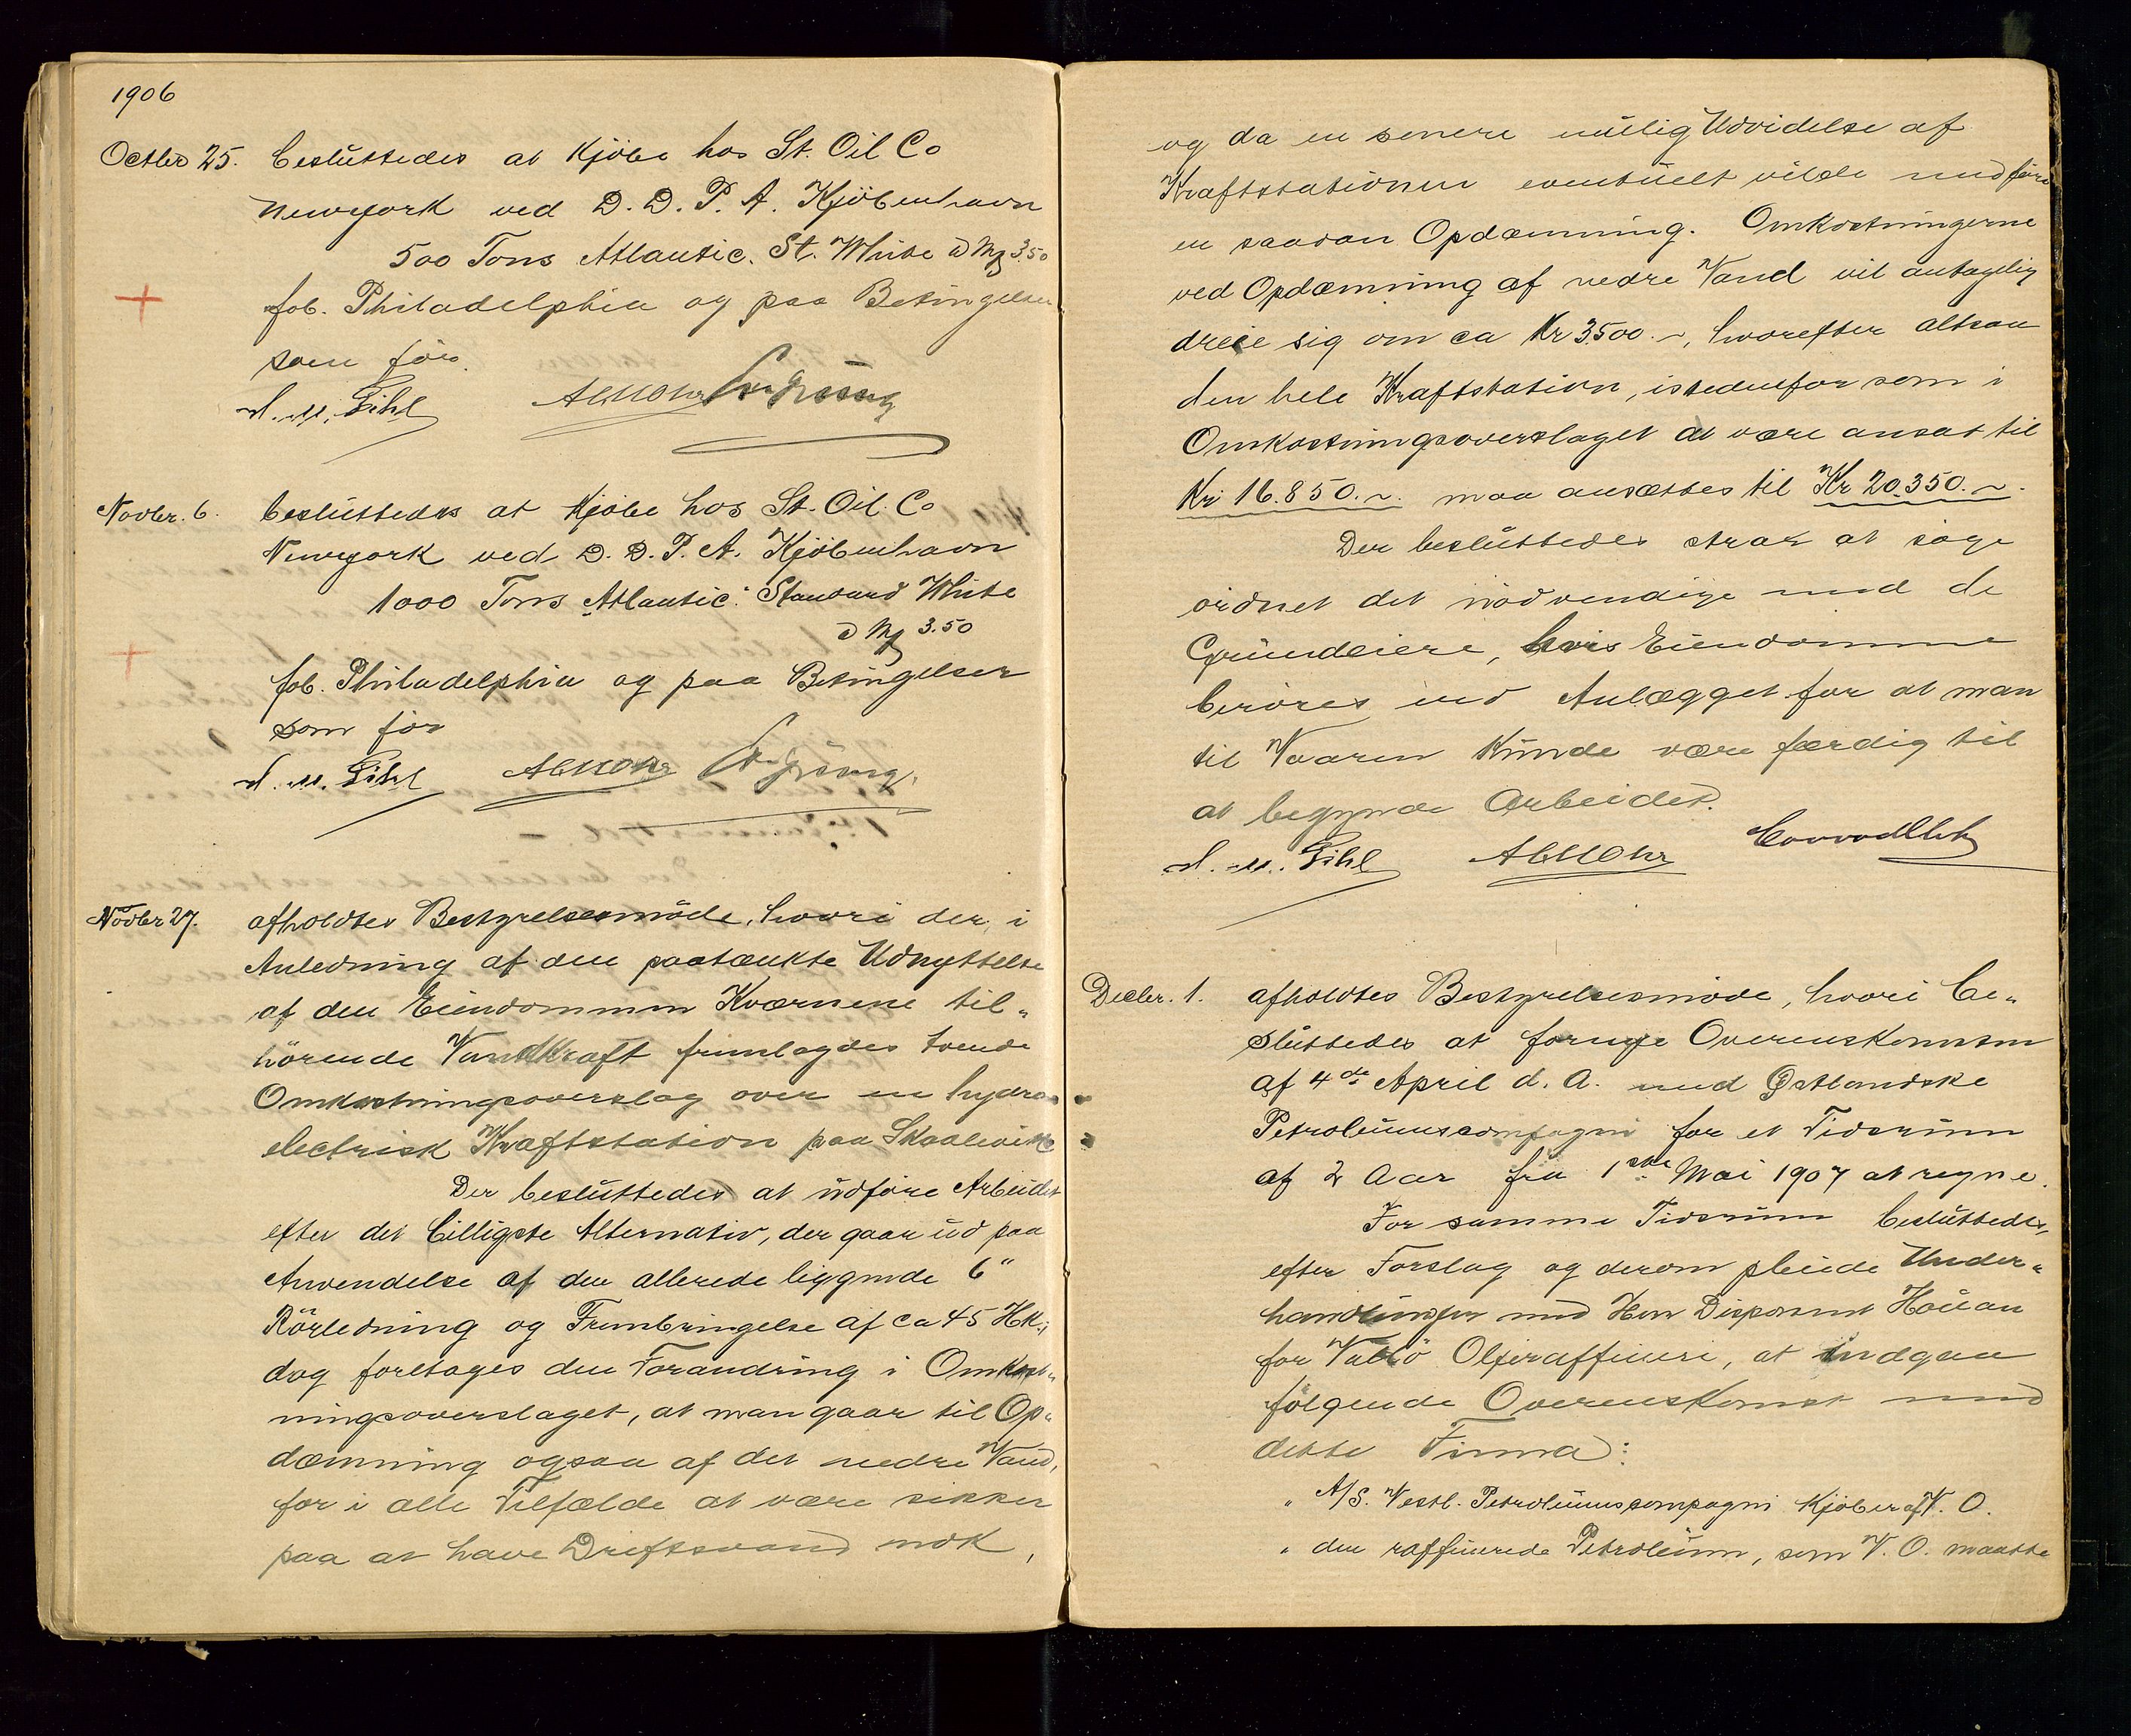 1906
Octber 25. besluttedes at Kjöbe hos St. Oil Co
Newyork ved D. D. P. A. Kjöbenhavn
500 Tons Atlantic. St. White à M 3.50
fob. Philadelphia og paa Betingelser
som för.
Gihl AC Mohr
Novbr. 6. besluttedes at Kjöbe hos St. Oil. Co
Newyork ved D. D. P. A. Kjöbenhavn
1000 Tons Atlantic: Standard White
à M 3.50
fob. Philadelphia og paa Betingelser
som för
Gihl AC Mohr
Novbr 27. afholdtes Bestyrelsesmöde, hvori der, i
Anledning af den paatænkte Udnyttelse
af den Eiendommen Kværnene til„
hörende Vandkraft fremlagdes tvende
Omkostningsoverslag over en hydro„
electrisk Kraftstation paa Skaalevik
Der besluttedes at udföre Arbeidet
efter det billigste Alternativ, der gaar ud paa
Anvendelse af den allerede liggende 6"
Rörledning og Frembringelse af ca 45 Hk.;
dog foretages den Forandring i Omkost„
ningsoverslaget, at man gaar til Op„
dæmning ogsaa af det nedre Vand,
for i alle Tilfælde at være sikker
paa at have Driftsvand nok,
og da en senere mulig Udvidelse af
Kraftstationen eventuelt vilde medföre
en saadan Opdæmning. Omkostningerne
ved Opdæmning af nedre Vand vil antagelig
dreie sig om ca Kr 3500.–, hvorefter altsaa
den hele Kraftstation, istedenfor som i
Omkostningsoverslaget at være ansat til
Kr. 16.850.–. maa ansættes til Kr 20.350.–.
Der besluttedes strax at söge
ordnet det nödvendige med de
Grundeiere, hvis Eiendomme
beröres ved Anlægget for at man
til Vaaren Kunde være færdig til
at begynde Arbeidet.
Gihl AC Mohr
Decbr. 1. afholdtes Bestyrelsesmöde, hvori be„
sluttedes at fornye Overenskomsten
af 4de April d. A. med Østlandske
Petroleumscompagni for et Tidsrum
af 2 Aar fra 1ste Mai 1907 at regne.
For samme Tidsrum besluttedes,
efter Forslag og derom pleiede Under„
handlinger med Herr Disponent Houan
for Vallö Olieraffineri, at indgaa
fölgende Overenskomst med
dette Firma:
„ A/S. Vestl. Petroleumscompagni Kjöber af V. O.
„ den raffinerede Petroleum, som V. O. maatte